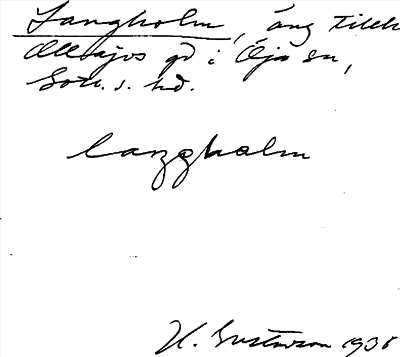 Langholm, äng tillh
gd i Öja sn,
Got. s. hd.
langholm
H. Gustavson 1935